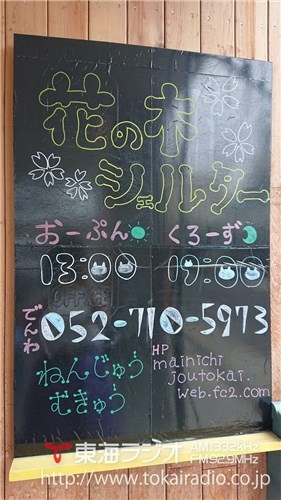 花の木
シェルター
おーぷん くろーず
13:00 19:00
でんわ 052-710-5973
ねんじゅう
むきゅう
HP
mainichi
joutokai.
web.fc2.com
東海ラジオ AM1332kHz
FM92.9MHz
http://www.tokairadio.co.jp